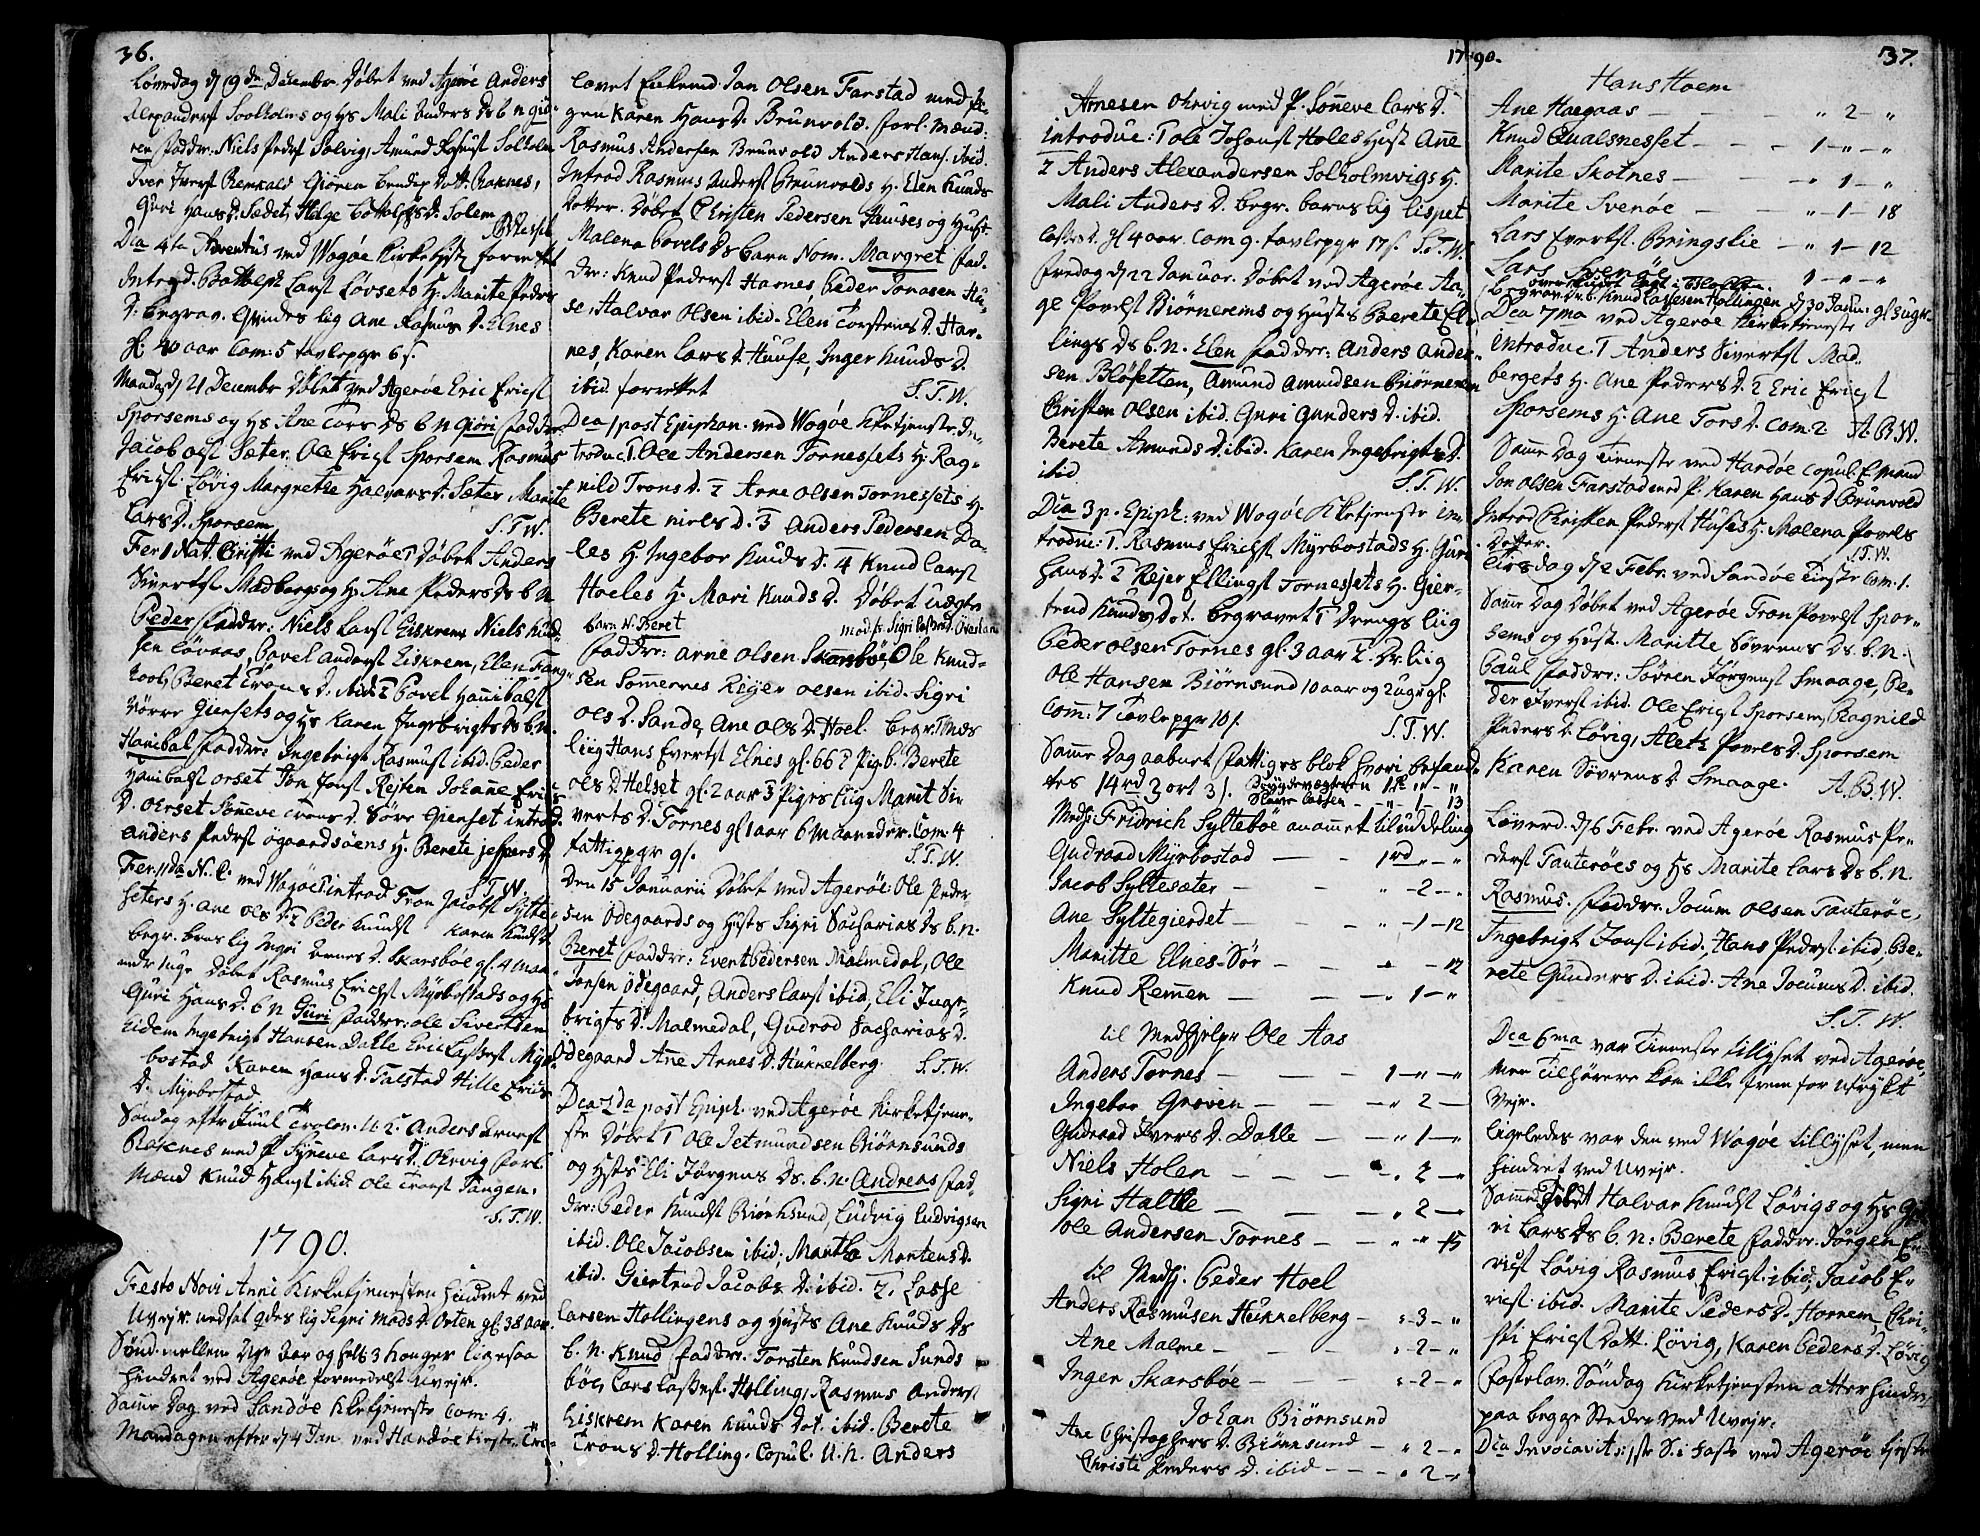 36.
Løverdag d. 19de Decembr. Døbet ved Agerøe Anders
Alexanders Soolholms og Hs Mali Anders Ds b n giø-
ren Faddr: Niels Peders Solvig, Amund Rasmus Solholm
Iver Ivers Remvald Giøren Bendix Dott. Raknes,
Guri Hans D. Sædet, Helge Bottolphs D. Solem
Dca 4te Adventus ved Wogøe Kirke forrettet
Introd. Bottolph Lars Løvsets H. Marite Peders
D. begrav. Qvindes lig Ane Rasmus D. Elnes
gl. 40 aar Com: 5 tavlepgr 6 s.
Mandag d. 21 Decembr Døbet ved Agerøe Eric Erics
Sporsems og Hs Ane Tors Ds b n Giöri Faddr:
Jacob ols Sæter. Ole Erics Sporsem Rasmus
Erics. Løvig Margrethe Halvars D. Sæter Marite
Lars D. Sporsem
S. T. W.
Fer. 1 Nat. Christi ved Agerøe T Døbet Anders
Siverts Madbergs og H. Ane Peders Ds b n
Peder Faddr: Niels Lars Eiskrem Niels Knud-
sen Løvaas, Povel Anders Eiskrem, Elen Tang-
Beret Trons D. ibid. 2 Povel Hanibals
Nörre Giensets og Hs Karen Ingebrigts Ds b.n.
Hanibal Faddr: Ingebrigt Rasmus ibid. Peder
Hanibals orset Jon Jons Rejten Johane Erics
D. ohrset Sönneve Trons D. Søre Gienset introd.
Anders Peders ögaardsöens H. Berete Jespers D.
Fer. 11da N. C. ved Wogøe T introd Tron Jacobs Sylte-
S. T. W.
seters H. Ane ols D. 2 Peder Knuds Karen Knuds D.
begr. barns lig Ingri Arnes D. Skarsbøe gl. 4 maa-
neder Døbet Rasmus Erichs Myrbostads og Hs
Guri Hans D. b N Guri Faddr: ole Sivertsen
ibidem Ingebrigt Hansen Dahle Eric Lasses Myr-
bostad Karen Hans D. Talstad Hille Erics
D. Myrbostad
Søndag efter Juul Trolov. U. 2. Anders Arnes
Raknes med P. Synneve Lars D. Ohrvig Forl.
Mænd Knud Hans ibid. Ole Trons Tangen.
S. T. W.
1790.
Festo Novi Anni Kirketjenesten hindret ved
Uvejr. nedsat qdes lig Sigri Mads D. Orten gl. 38 aar.
Sønd. mellem Nye Aar og hell. 3 konger ligesaa
hindret ved Agerøe formedelst Uvejr.
Samme Dag ved Sandøe Kketjeneste Com: 4.
Mandagen efter d. 4 Jan ved Hardøe Tieneste Tro-
lovet Enkemd: Jon Olsen Farstad med Pi-
gen Karen Hans D. Brunvold. Forl. Mænd:
Rasmus Andersen Brunvold Anders Hans. ibid.
Introd Rasmus Anders Brunvolds H. Elen Knuds
Dotter. Døbet Christen Pedersen Huuses og Hust.
Malena Povels Ds barn Nom. Margret Fad-
drr: Knud Peders Harnes Peder Jonasen Hu-
se, Halvar Olsen ibid. Elen Torstens D. Har-
nes, Karen Lars D. Huuse, Inger Knuds D.
ibid. forrettet S. T. W.
Dca 1 post Epiphan. ved Wogøe Kketjeneste In-
troduc. T. Ole Andersen Tornessets H. Rag-
nild Trons D. 2 Arne olsen Tornessets H.
Berete niels D. 3 Anders Pedersen Da-
les H. Ingebor Knuds D. 4 Knud Lars
Hoeles H. Mari Knuds D. Døbet uægte
barn N. Beret
Faddrr: arne olsen Skarsbøe, Ole Knud-
sen Sommernes Reijer olsen ibid. Sigri
ols D. Sande, Ane ols D. Hoel. begr. T Mds
lig Hans Everts Elnes gl. 66 2 Pigb. Berete
ols D. Helset gl. 2 aar 3 Piges lig Marit Si-
verts D. Tornes gl 1 aar 6 Maaneder Com: 4
fattigpgr 9 s. S. T. W.
Den 15 Januarii Døbet ved Agerøe: Ole Peder-
sen Ödegaards og Husts Sigri Sacharias Ds b.n.
Beret Faddr: Evert Pedersen Malmedal, Ole
Jonsen Ödegaard, Anders Lars ibid, Eli Inge-
brigts D. Malmedal, Gudrod Sacharias D.
Ödegaard Ane Arnes D. Hukkelberg. S. T. W.
Dca 2da post Epiph. ved Agerøe Kirketjene-
ste Døbet T Ole Jetmundsen Biörnsunds
og Husts Eli Jørgens Ds. b.n. Andreas Fad-
drr: Peder Knuds Biörnsund, Ludvig Ludvigsen
ibid. Ole Jacobsen ibid; Martha Mortens D.
ibid. Giertrud Jacobs D: ibid. 2. Lasse
Larsen Hollingens og Husts Ane Knuds Ds
b. n. Knud Faddr. Torsten Knudsen Sunds
böe, Lars Lasses. Holling, Rasmus Anders
Eiskrem Karen Knuds Dot. ibid. Berete
Trons D. Holling. Copul. U. h. Anders
1790.
37.
Arnesen Ohrvig med P. Sönneve Lars D.
introduc: T ole Johans Holes Hust Ane
2 Anders Alexandersen Solholmvigs H.
Mali Anders D. begr. barns lig lispet
Lasses D. gl 4 aar. Com 9. tavlepgr 17 s. S. T. W.
Fredag d. 22 Januar. Døbet ved Agerøe Aa-
ge Povels Biörnerems og Husts Berete El-
lings Ds b.n. Elen Faddrr: Anders Ander-
sen Blösetten, Amund Amundsen Biörnerem
Christen Olsen ibid. Guri Gunders D. ibid.
Berete Amunds D. ibid. Karen Ingebrigts D.
ibid S. T. W.
Dca 3 p. Epiph: ved Wogøe Kketjeneste in-
troduc: T. Rasmus Erichs Myrbostads H. Guri
Hans D. 2 Rejer Ellings Tornessets H. Gier-
trud Knuds Dot. begravet T Drengs lig
Peder olsen Tornes gl. 3 aar 2. Dr. lig
Ole Hansen Biörnsund 10 aar og 2 uger gl.
Com: 7 Tavlepgr 10 s. S. T. W.
Samme Dag aabnet Fattiges blok hvori befand-
tes 14 rd 3 ort 3 s.
Medh. Fridrich Syltebøe anammet til uddeling
Gudraad Myrbostad — — 1 rd „ — „
Jacob Syltesæter — — „ — 2 — „
Ane Syltegierdet — — „ — 1 — 12
Maritte Elnes. Sör — — „ — 12
Knud Remen — — „ 1 — „
til Medhjelper Ole Aas
Anders Tornes — — — 1 — „ — „
Ingebor Groven — — — „ 2 —
Gudraad Ivers D. Dahle — — „ 1 — „
Niels Holen — — — „ 2 — „
Sigri Haltle — — — „ 2 — „
ole Andersen Tornes — — „ „ 15
til Medh. Peder Hoel
Anders Rasmusen Hukkelberg — „ 3 — „
Ane Malme — — — „ 2 — „
Inger Skarsbøe — — — „ 2 — „
Johan Biørnsund
Ane Christophers D. Biørnsund — „ 2 — „
Christi Peders D. ibid — — „ 2 — „
Hans Hoem
Ane Haegaas — — — „ 2 — „
Knud Qualsnesset — — 1 — „ — „
Marite Skotnes — — „ 1 — „
Marite Svenøe — — „ — 1 — 18
Lars Everts. Bringslie — „ 1 — 12
Lars Svenøe 1 — „ — „
Begrav. Dr. b. Knud Lassesen Hollingen d. 30 Janu: gl 3 uger
Dca 7ma ved Agerøe Kirketieneste
introduc. T Anders Siverts Mad-
bergets H. Ane Peders D. 2 Eric Erics
Sporsems H. Ane Tors D. Com: 2 A. B. W.
Samme Dag Tieneste ved Hardøe Copul. E. Mand
Jon olsen Farstad med P. Karen Hans D. Brunvold
Introd Christen Peders Huses H. Malena Povels
Dotter. S. T. W.
Tirsdag d. 2 Febr. ved Sandøe Tieneste Com. 1.
Samme Dag Døbet ved Agerøe Tron Povels Spor-
sems og Hust. Maritte Sövrens Ds. b. n.
Paul Faddrr: Sövren Jörgens Smaage, Pe-
der Ivers ibid. Ole Erics Sporsem, Ragnild
Peders D. Lövig, Aleth Povels D. Sporsem
Karen Sövrens D. Smaage. A. B. W.
Løverd. d. 6 Febr. ved Agerøe Rasmus Pe-
ders Tanterøes og Hs Marite Lars Ds b. n.
Rasmus. Faddr. Jocum Olsen Tanterøe,
Ingebrigt Jons ibid, Hans Peders ibid, Be-
rete Gunders D. ibid. Ane Jocums D. ibid.
S. T. W.
Dca 6ma var Tieneste tillyset ved Agerøe,
men Tilhörere kom ikke frem for Ustyrt
Vejr.
ligeledes var den ved Wogøe tillyset, men
hindret ved Uvejr.
Samme D. Døbt Halvar Knuds Løvigs og Hs Gu-
ri Lars Ds b. n: Berete Faddr. Jörgen E-
rics Løvig Rasmus Erics ibid, Jacob E-
rics ibid. Marite Peders D. Horrem, Chri-
sti Erics Dott. Løvig, Karen Peders D. Løvig
Fastelav. Söndag Kirketjensten atter hindret
paa begge Steder ved Uvejr.
Dca Invocavit: 1ste S. i Faste ved Agerøe